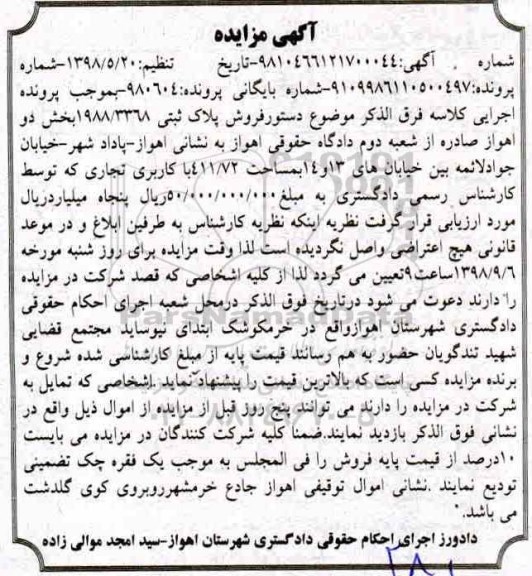 آگهی مزایده
شماره آگهی:۹۸۱۰۴۶۶۱۲۱۷۰۰۰۴۴-تاریخ تنظیم:۱۳۹۸/۵/۲۰-شماره
پرونده:۹۱۰۹۹۸۶۱۱۰۵۰۰۴۹۷-شماره بایگانی پرونده:۹۸۰۶۰۴-بموجب پرونده
اجرایی کلاسه فرق الذکر موضوع دستورفروش پلاک ثبتی ۱۹۸۸/۳۳۶۸بخش دو
اهواز صادره از شعبه دوم دادگاه حقوقی اهواز به نشانی اهواز-پاداد شهر-خیابان
جوادلائمه بین خیابان های ۱۳و۱۴بمساحت ۴۱۱/۷۲با کاربری تجاری که توسط
کارشناس رسمی دادگستری به مبلغ۵۰/۰۰۰/۰۰۰/۰۰۰ریال پنجاه میلیاردریال
مورد ارزیابی قرار گرفت نظریه اینکه نظریه کارشناس به طرفین ابلاغ و در موعد
قانونی هیچ اعتراضی واصل نگردیده است لذا وقت مزایده برای روز شنبه مورخه
۱۳۹۸/۹/۶ساعت۹تعیین می گردد لذا از کلیه اشخاصی که قصد شرکت در مزایده
را دارند دعوت می شود درتاریخ فوق الذکر درمحل شعبه اجرای احکام حقوقی
دادگستری شهرستان اهوازواقع در خرمکوشک ابتدای نیوساید مجتمع قضایی
شهید تندگویان حضور به هم رسانند قیمت پایه از مبلغ کارشناسی شده شروع و
برنده مزایده کسی است که بالاترین قیمت را پیشنهاد نماید .اشخاصی که تمایل به
شرکت در مزایده را دارند می توانند پنج روز قبل از مزایده از اموال ذیل واقع در
نشانی فوق الذکر بازدید نمایند.ضمنا کلیه شرکت کنندگان در مزایده می بایست
۱۰درصد از قیمت پایه فروش را فی المجلس به موجب یک فقره چک تضمینی
تودیع نمایند .نشانی اموال توقیفی اهواز جادع خرمشهرروبروی کوی گلدشت
می باشد.
دادورز اجرای احکام حقوقی دادگستری شهرستان اهواز-سید امجد موالی زاده
ParsNamadData